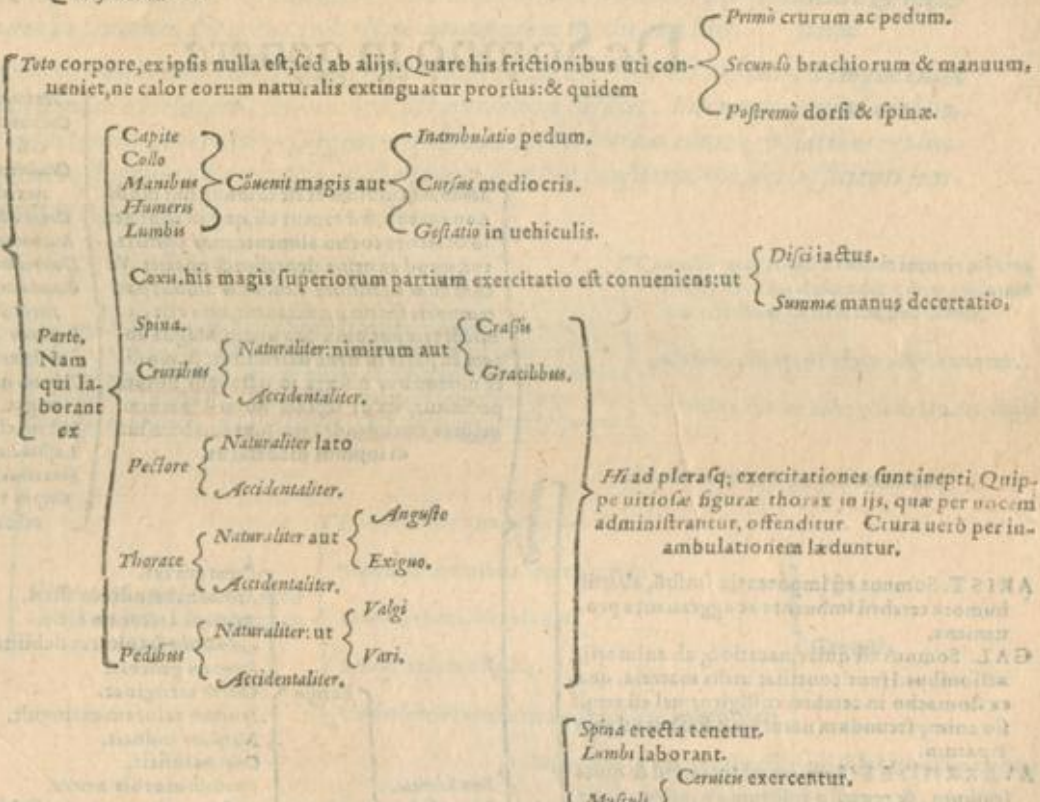 Primò crurum ac pedum.
Toto corpore, ex ipſis nulla eſt, ſed ab alijs. Quare his frictionibus uti con-
Secundò brachiorum & manuum,
ueniet, ne calor eorum naturalis extinguatur prorſus: & quidem
Poſtremò dorſi & ſpinæ.
Capite
Collo
Manibus
Humeris
Lumbis
Cõuenit magis aut
Inambulatio pedum.
Curſus mediocris.
Geſtatio in uehiculis.
Coxis. his magis ſuperiorum partium exercitatio eſt conueniens: ut
Diſci iactus.
Summæ manus decertatio.
Parte.
Nam
qui la-
borant
ex
Spina.
Cruribus
Naturaliter: nimirum aut
Craſsis
Gracilibus.
Accidentaliter.
Pectore
Naturaliter lato
Accidentaliter.
Thorace
Naturaliter aut
Anguſto
Exiguo.
Accidentaliter.
Pedibus
Naturaliter: ut
Valgi
Vari.
Accidentaliter.
Hi ad plerasq; exercitationes ſunt inepti. Quip-
pe uitioſæ figuræ thorax in ijs, quæ per uocem
adminiſtrantur, offenditur. Crura uerò per in-
ambulationem læduntur.
Spina erecta tenetur.
Lumbi laborant.
Muſculi
Ceruicis exercentur.